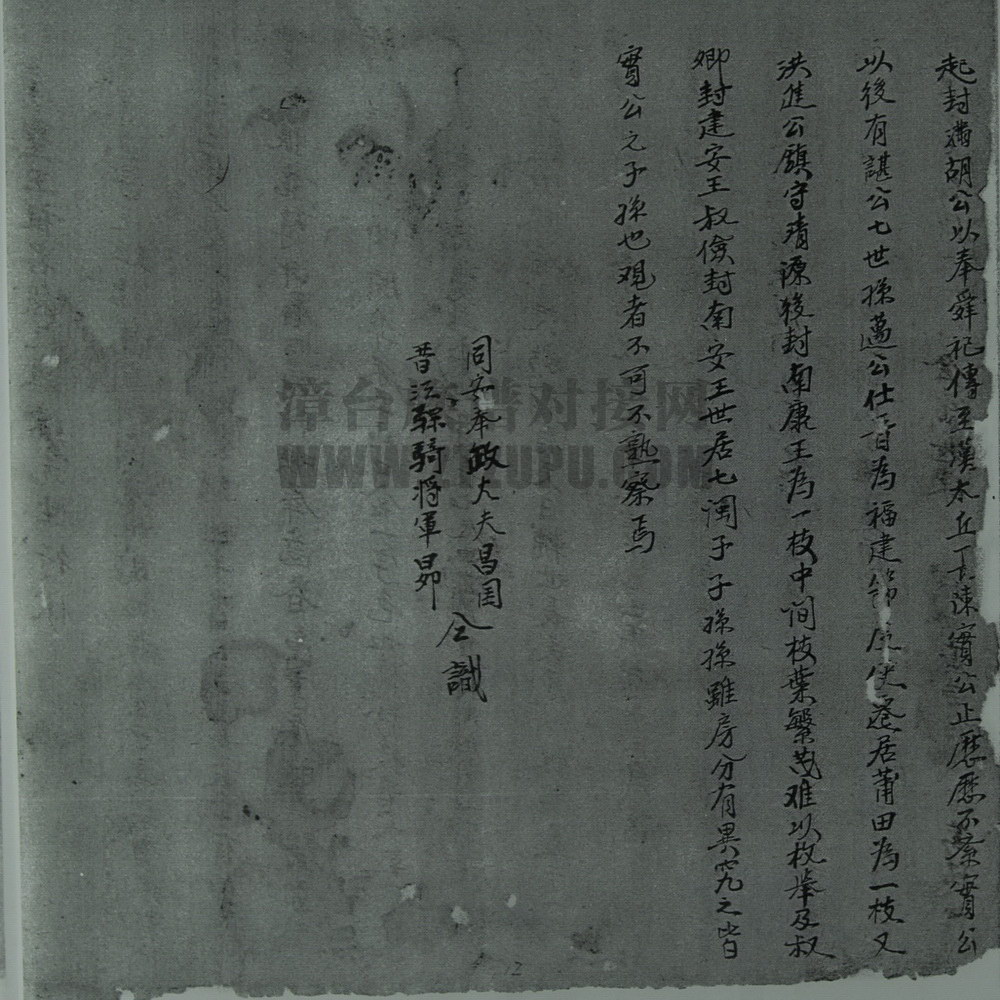 起封滿胡公以奉舜祀傳至漢太丘丁陳實公止歷歷不紊實公
以後有諶公七世孫邁公仕晉為福建節度使遷居莆田為一枝又
洪進公鎮守清源後封南康王為一枝中間枝葉繁茂难以枚舉及叔
卿封建安王叔儉封南安王世居七閩子子孫孫雖房分有異究之皆
實公之子孫也观者不可不熟察焉
同安奉政大夫昌国
晋江騄騎将軍昴
仝識
漳台族谱对接网
WWW.ZTZUPU.COM
12